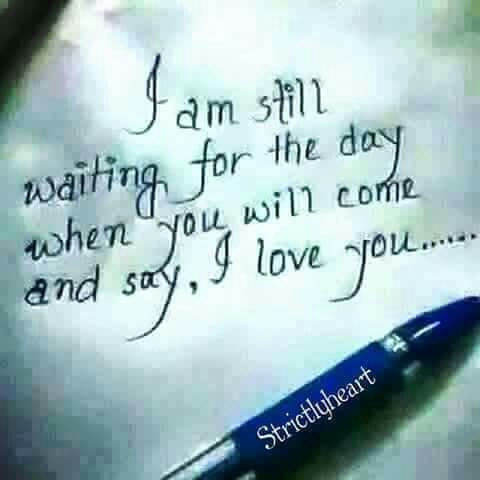 I am still
waiting for the day
when you will come
and say, I love you......
Strictlyheart